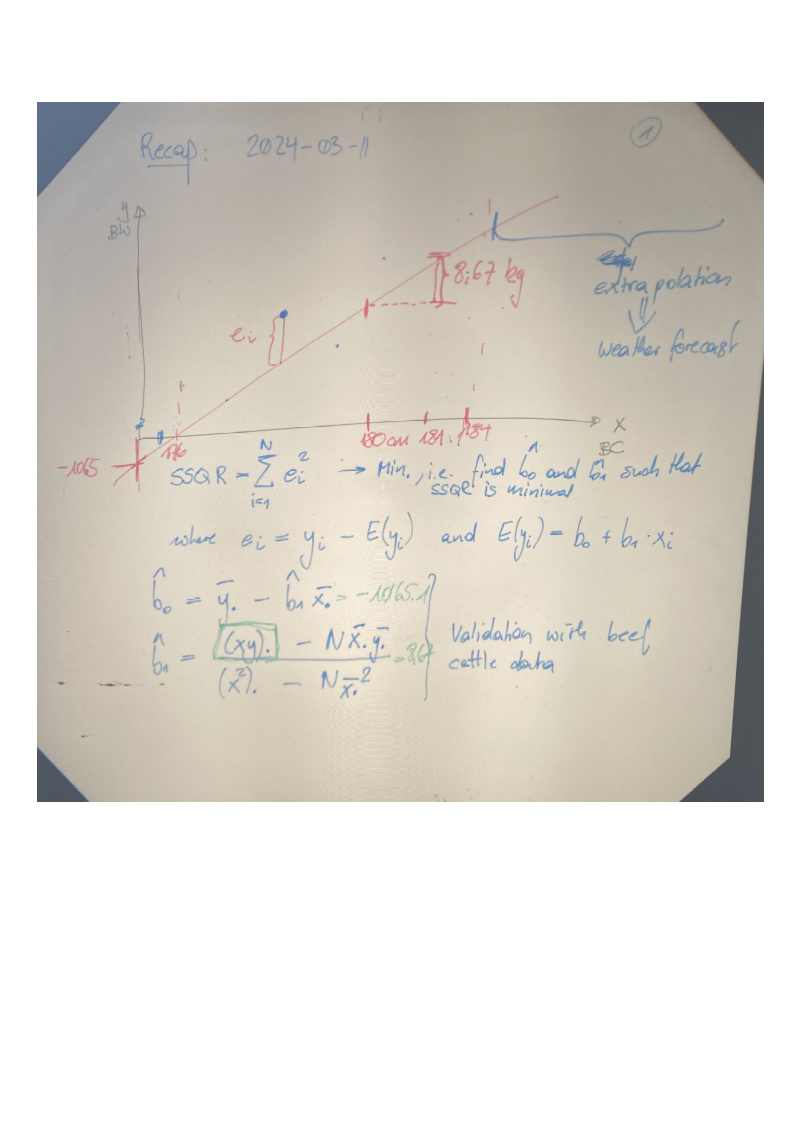 Recap: 2024-03-11
1
y
BW
8.67 kg
e_i
extrapolation
⇓
weather forecast
176
180 cm 181 184
x
BC
-1065
SSQR = \sum_{i=1}^{N} e_i^2 → Min., i.e. find \hat{b}_0 and \hat{b}_1 such that
SSQR is minimal
where e_i = y_i - E(y_i) and E(y_i) = b_0 + b_1 · x_i
\hat{b}_0 = \bar{y}. - \hat{b}_1 \bar{x}. = -1065.1
\hat{b}_1 = \frac{(xy). - N\bar{x}.\bar{y}.}{(x^2). - N\bar{x}.^2} = 8.67
Validation with beef
cattle data